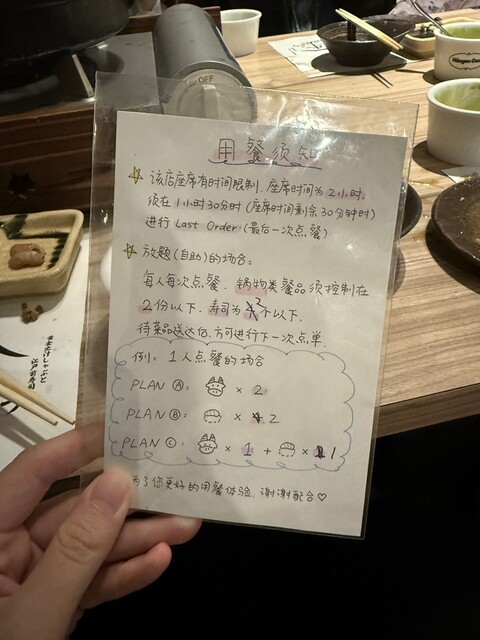 OFF
Häagen-Dazs
用餐须知
☆ 该店座席有时间限制，座席时间为2小时，
须在1小时30分时（座席时间剩余30分钟时）
进行Last Order（最后一次点餐）
☆ 放题（自助）的场合：
每人每次点餐，锅物类餐品须控制在
2份以下，寿司为2个以下，
待菜品送达后，方可进行下一次点单．
例：1人点餐的场合
PLAN Ⓐ： × 2
PLAN Ⓑ： × 2
PLAN Ⓒ： × 1 + × 1
为了您更好的用餐体验，谢谢配合♡
しゃぶと
江戸前寿司